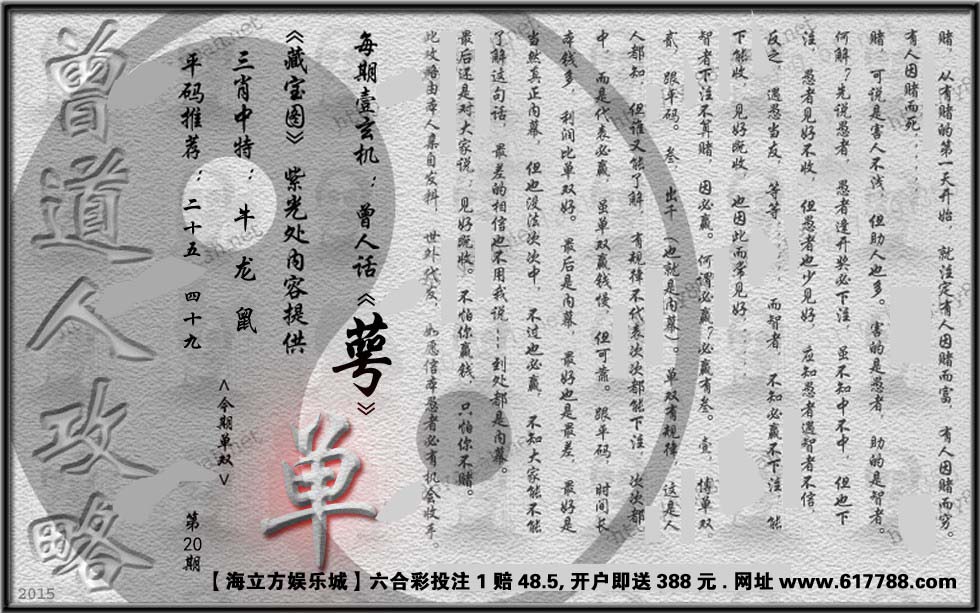 赌，从有赌的第一天开始，就注定有人因赌而富，有人因赌而穷。
有人因赌而死......
赌，可说是害人不浅，但助人也多。害的是愚者，助的是智者。
何解？先说愚者，愚者逢开奖必下注，虽不知中不中，但也下
注，愚者见好不收，但愚者也少见好，应知愚者遇智者不信，
反之，遇愚当友，等等......而智者，不知必赢不下注，能
下能收，见好既收，也因此而常见好......
智者下注不算赌，因必赢。何谓必赢？必赢有叁。壹，博单双，
贰，跟平码。叁，出千（也就是内幕）。单双有规律，这是人
人都知，但谁又能了解，有规律不代表次次都能下注，次次都
中，而是代表必赢，虽单双赢钱慢，但可靠。跟平码，时间长，
本钱多，利润比单双好。最后是内幕，最好也是最差，最好是
当然真正内幕，但也没法次次中，不过也必赢，不知大家能不能
了解这句话，最差的相信也不用我说......到处都是内幕。
最后还是对大家说：见好既收。不怕你赢钱，只怕你不赌。
此攻略由本人集自发料，世外代友，如愿信本愚者必有机会收手。
每期壹玄机：曾人话《萼》
《藏宝图》紫光处内容提供
三肖中特：牛 龙 鼠
平码推荐：二十五 四十九
<今期单双>
单
第20期
曾道人攻略
2015
【海立方娱乐城】六合彩投注1赔48.5,开户即送388元.网址www.617788.com